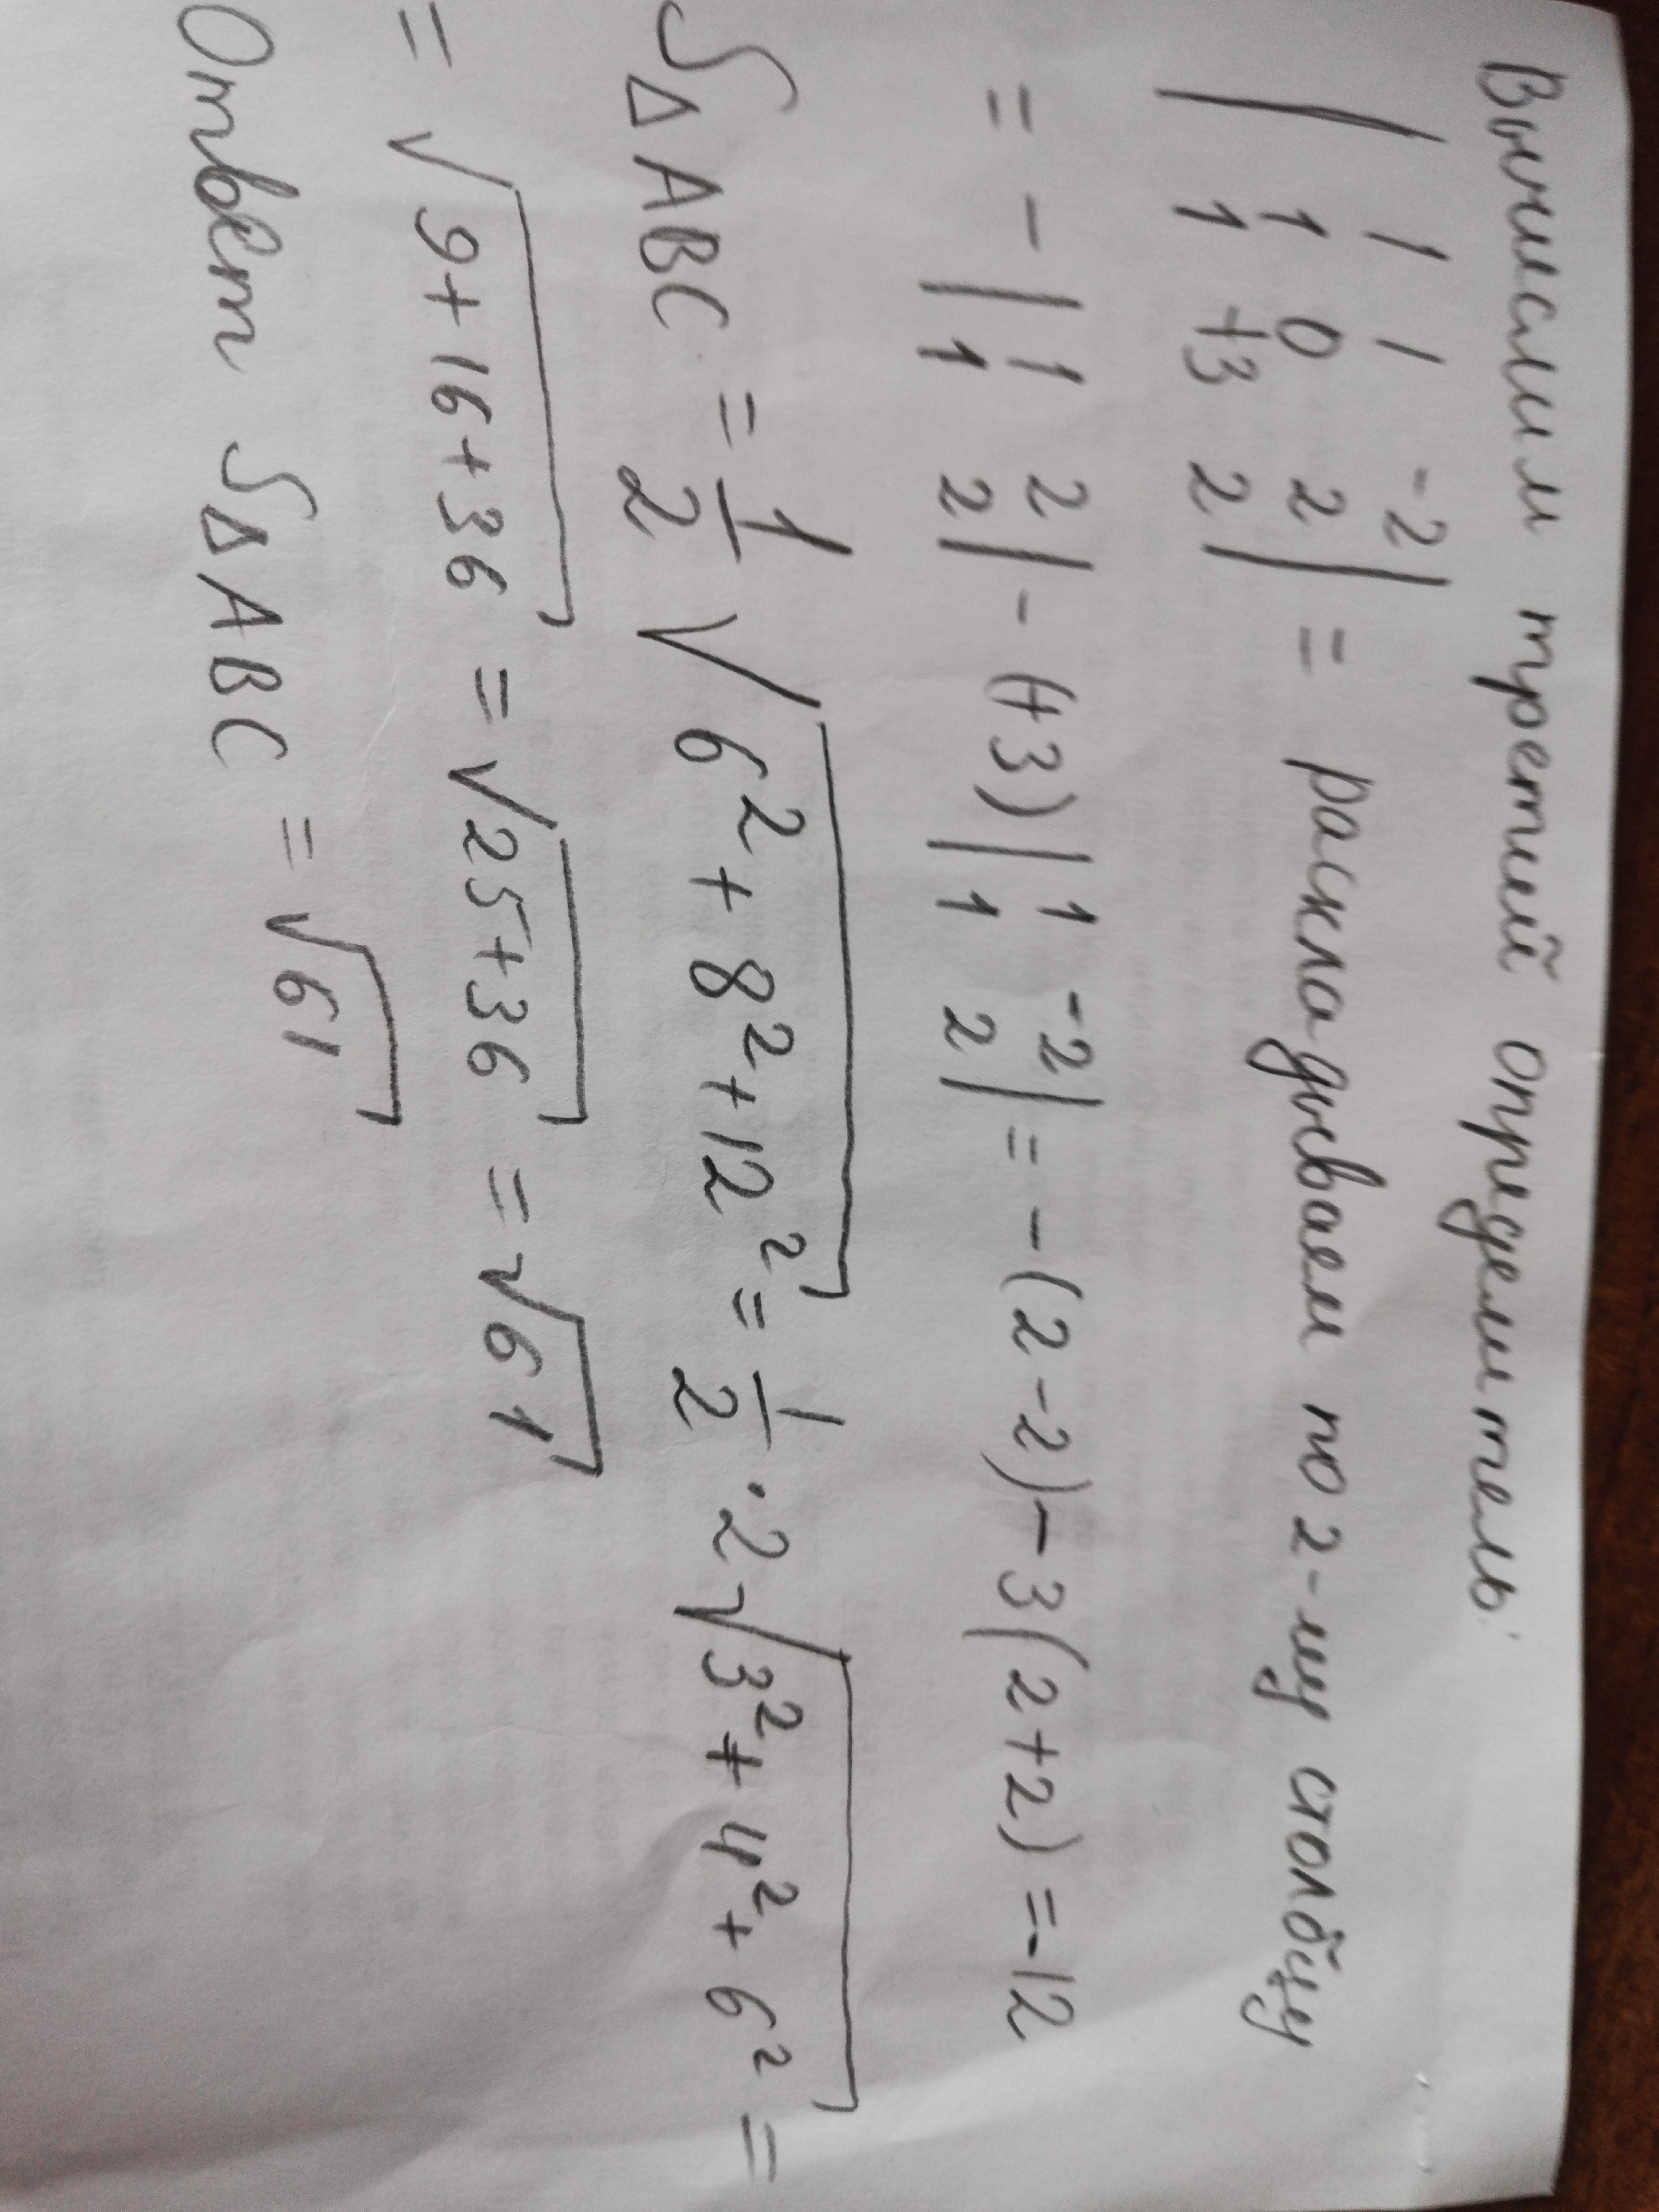 Вычислим третий определитель:
| 1 1 -2 |
| 1 0 2 | = раскладываем по 2-му столбцу
| 1 +3 2 |
= - | 1 2 | - (+3) | 1 -2 | = -(2-2)-3(2+2)=-12
| 1 2 | | 1 2 |
S△ABC = 1/2 √(6²+8²+12²) = 1/2 · 2√(3²+4²+6²) =
= √(9+16+36) = √(25+36) = √61
Ответ S△ABC = √61